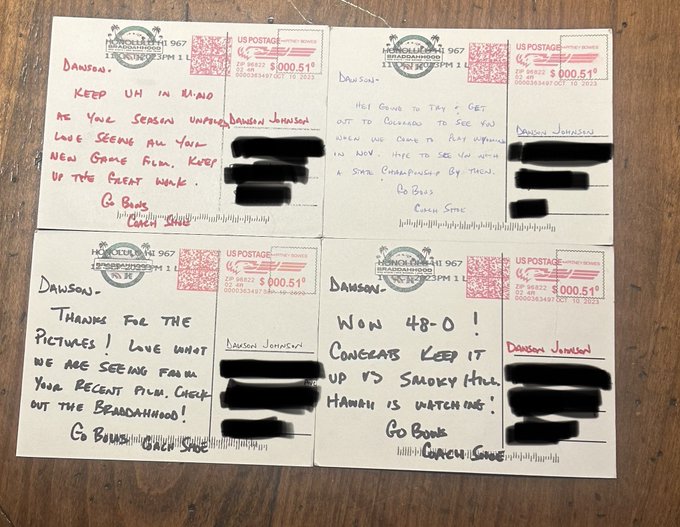 HONOLULU HI 967
BRADDAHHOOD
US POSTAGE PITNEY BOWES
ZIP 96822
02 4R
$ 000.51⁰
0000363497 OCT 10 2023
DAWSON-
KEEP UH IN MIND
AS YOUR SEASON UNFOLDS
LOVE SEEING ALL YOUR
NEW GAME FILM. KEEP
UP THE GREAT WORK.
GO BOWS
COACH STOE
DAWSON JOHNSON
HONOLULU HI 967
BRADDAHHOOD
US POSTAGE PITNEY BOWES
ZIP 96822
02 4R
$ 000.51⁰
0000363497 OCT 10 2023
DAWSON-
HEY GOING TO TRY & GET
OUT TO COLORADO TO SEE YOU
WHEN WE COME TO PLAY WYOMING
IN NOV. HOPE TO SEE YOU WITH
A STATE CHAMPIONSHIP BY THEN.
GO BOWS
COACH STOE
DAWSON JOHNSON
HONOLULU HI 967
BRADDAHHOOD
US POSTAGE PITNEY BOWES
ZIP 96822
02 4R
$ 000.51⁰
0000363497
DAWSON-
THANKS FOR THE
PICTURES! LOVE WHAT
WE ARE SEEING FROM
YOUR RECENT FILM. CHECK
OUT THE BRADDAHHOOD!
GO BOWS
COACH STOE
DAWSON JOHNSON
HONOLULU HI 967
BRADDAHHOOD
US POSTAGE PITNEY BOWES
ZIP 96822
02 4R
$ 000.51⁰
0000363497 OCT 10 2023
DAWSON-
WON 48-0!
CONGRATS KEEP IT
UP VS SMOKY HILL.
HAWAII IS WATCHING!
GO BOWS
COACH STOE
DAWSON JOHNSON